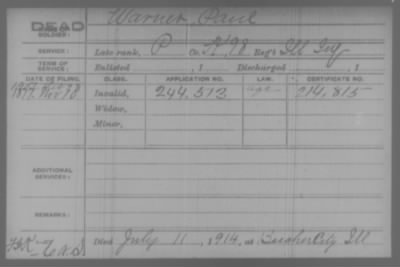 DEAD
Warner, Paul
SOLDIER:
SERVICE: Late rank, P Co. K, 98 Reg't Ill Inf
TERM OF SERVICE: Enlisted , 1 Discharged , 1
DATE OF FILING. CLASS. APPLICATION NO. LAW. CERTIFICATE NO.
Invalid, 244,513 214,815
Widow,
Minor,
ADDITIONAL SERVICES:
REMARKS:
Died July 11, 1914, at Beecher City Ill